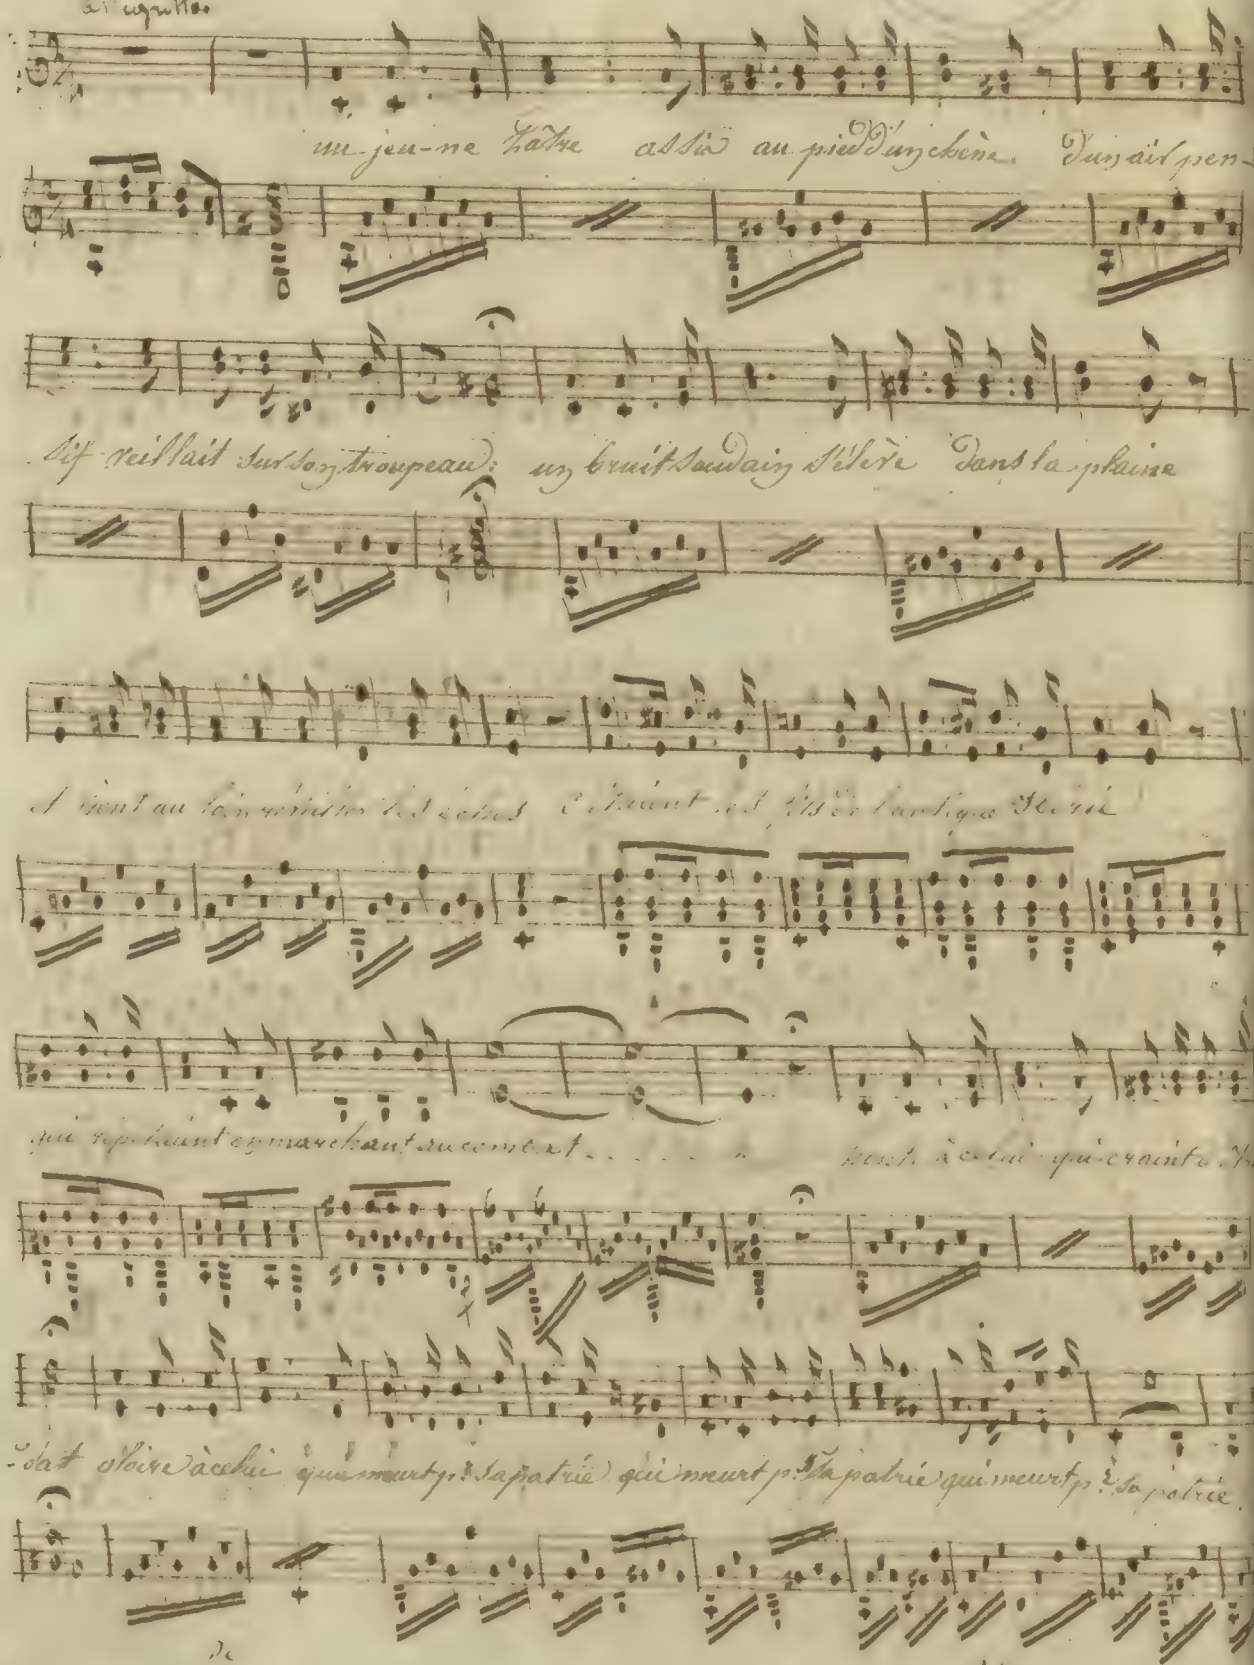 un jeu-ne Pâtre assis au pied d'un chêne. D'un air pen-
sif veillait sur son troupeau: un bruit soudain s'élève dans la plaine
et vient au loin les échos c'étaient les fils de l'antique
qui en marchant au combat . . . . . à celui qui craint
-dat gloire à celui qui meurt pr sa patrie qui meurt pr sa patrie qui meurt pr sa patrie.